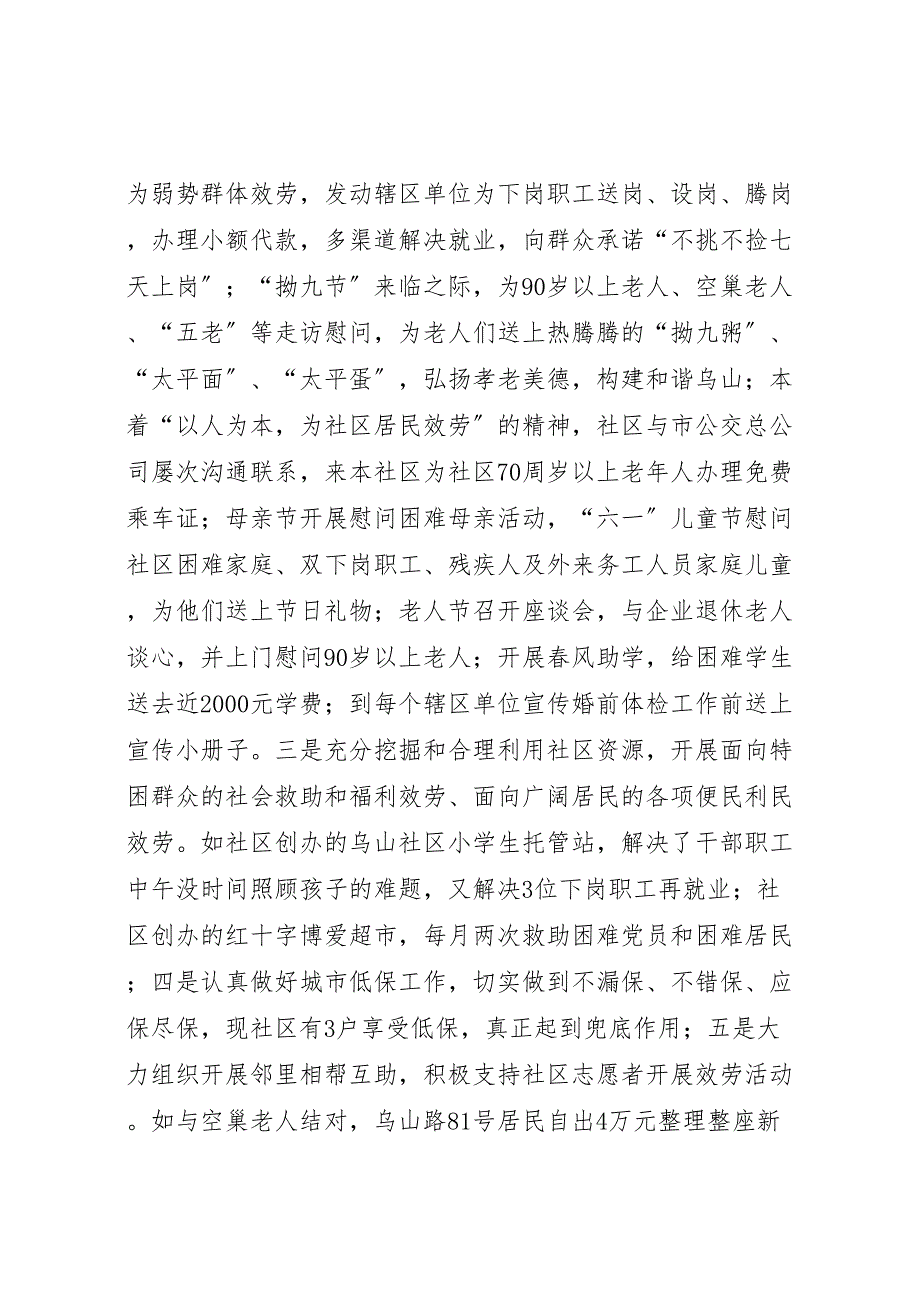 为弱势群体效劳，发动辖区单位为下岗职工送岗、设岗、腾岗
，办理小额代款，多渠道解决就业，向群众承诺“不挑不捡七
天上岗〞；“拗九节〞来临之际，为90岁以上老人、空巢老人
、“五老〞等走访慰问，为老人们送上热腾腾的“拗九粥〞、
“太平面〞、“太平蛋〞，弘扬孝老美德，构建和谐乌山；本
着“以人为本，为社区居民效劳〞的精神，社区与市公交总公
司屡次沟通联系，来本社区为社区70周岁以上老年人办理免费
乘车证；母亲节开展慰问困难母亲活动，“六一〞儿童节慰问
社区困难家庭、双下岗职工、残疾人及外来务工人员家庭儿童
，为他们送上节日礼物；老人节召开座谈会，与企业退休老人
谈心，并上门慰问90岁以上老人；开展春风助学，给困难学生
送去近2000元学费；到每个辖区单位宣传婚前体检工作前送上
宣传小册子。三是充分挖掘和合理利用社区资源，开展面向特
困群众的社会救助和福利效劳、面向广阔居民的各项便民利民
效劳。如社区创办的乌山社区小学生托管站，解决了干部职工
中午没时间照顾孩子的难题，又解决3位下岗职工再就业；社
区创办的红十字博爱超市，每月两次救助困难党员和困难居民
；四是认真做好城市低保工作，切实做到不漏保、不错保、应
保尽保，现社区有3户享受低保，真正起到兜底作用；五是大
力组织开展邻里相帮互助，积极支持社区志愿者开展效劳活动
。如与空巢老人结对，乌山路81号居民自出4万元整理整座新